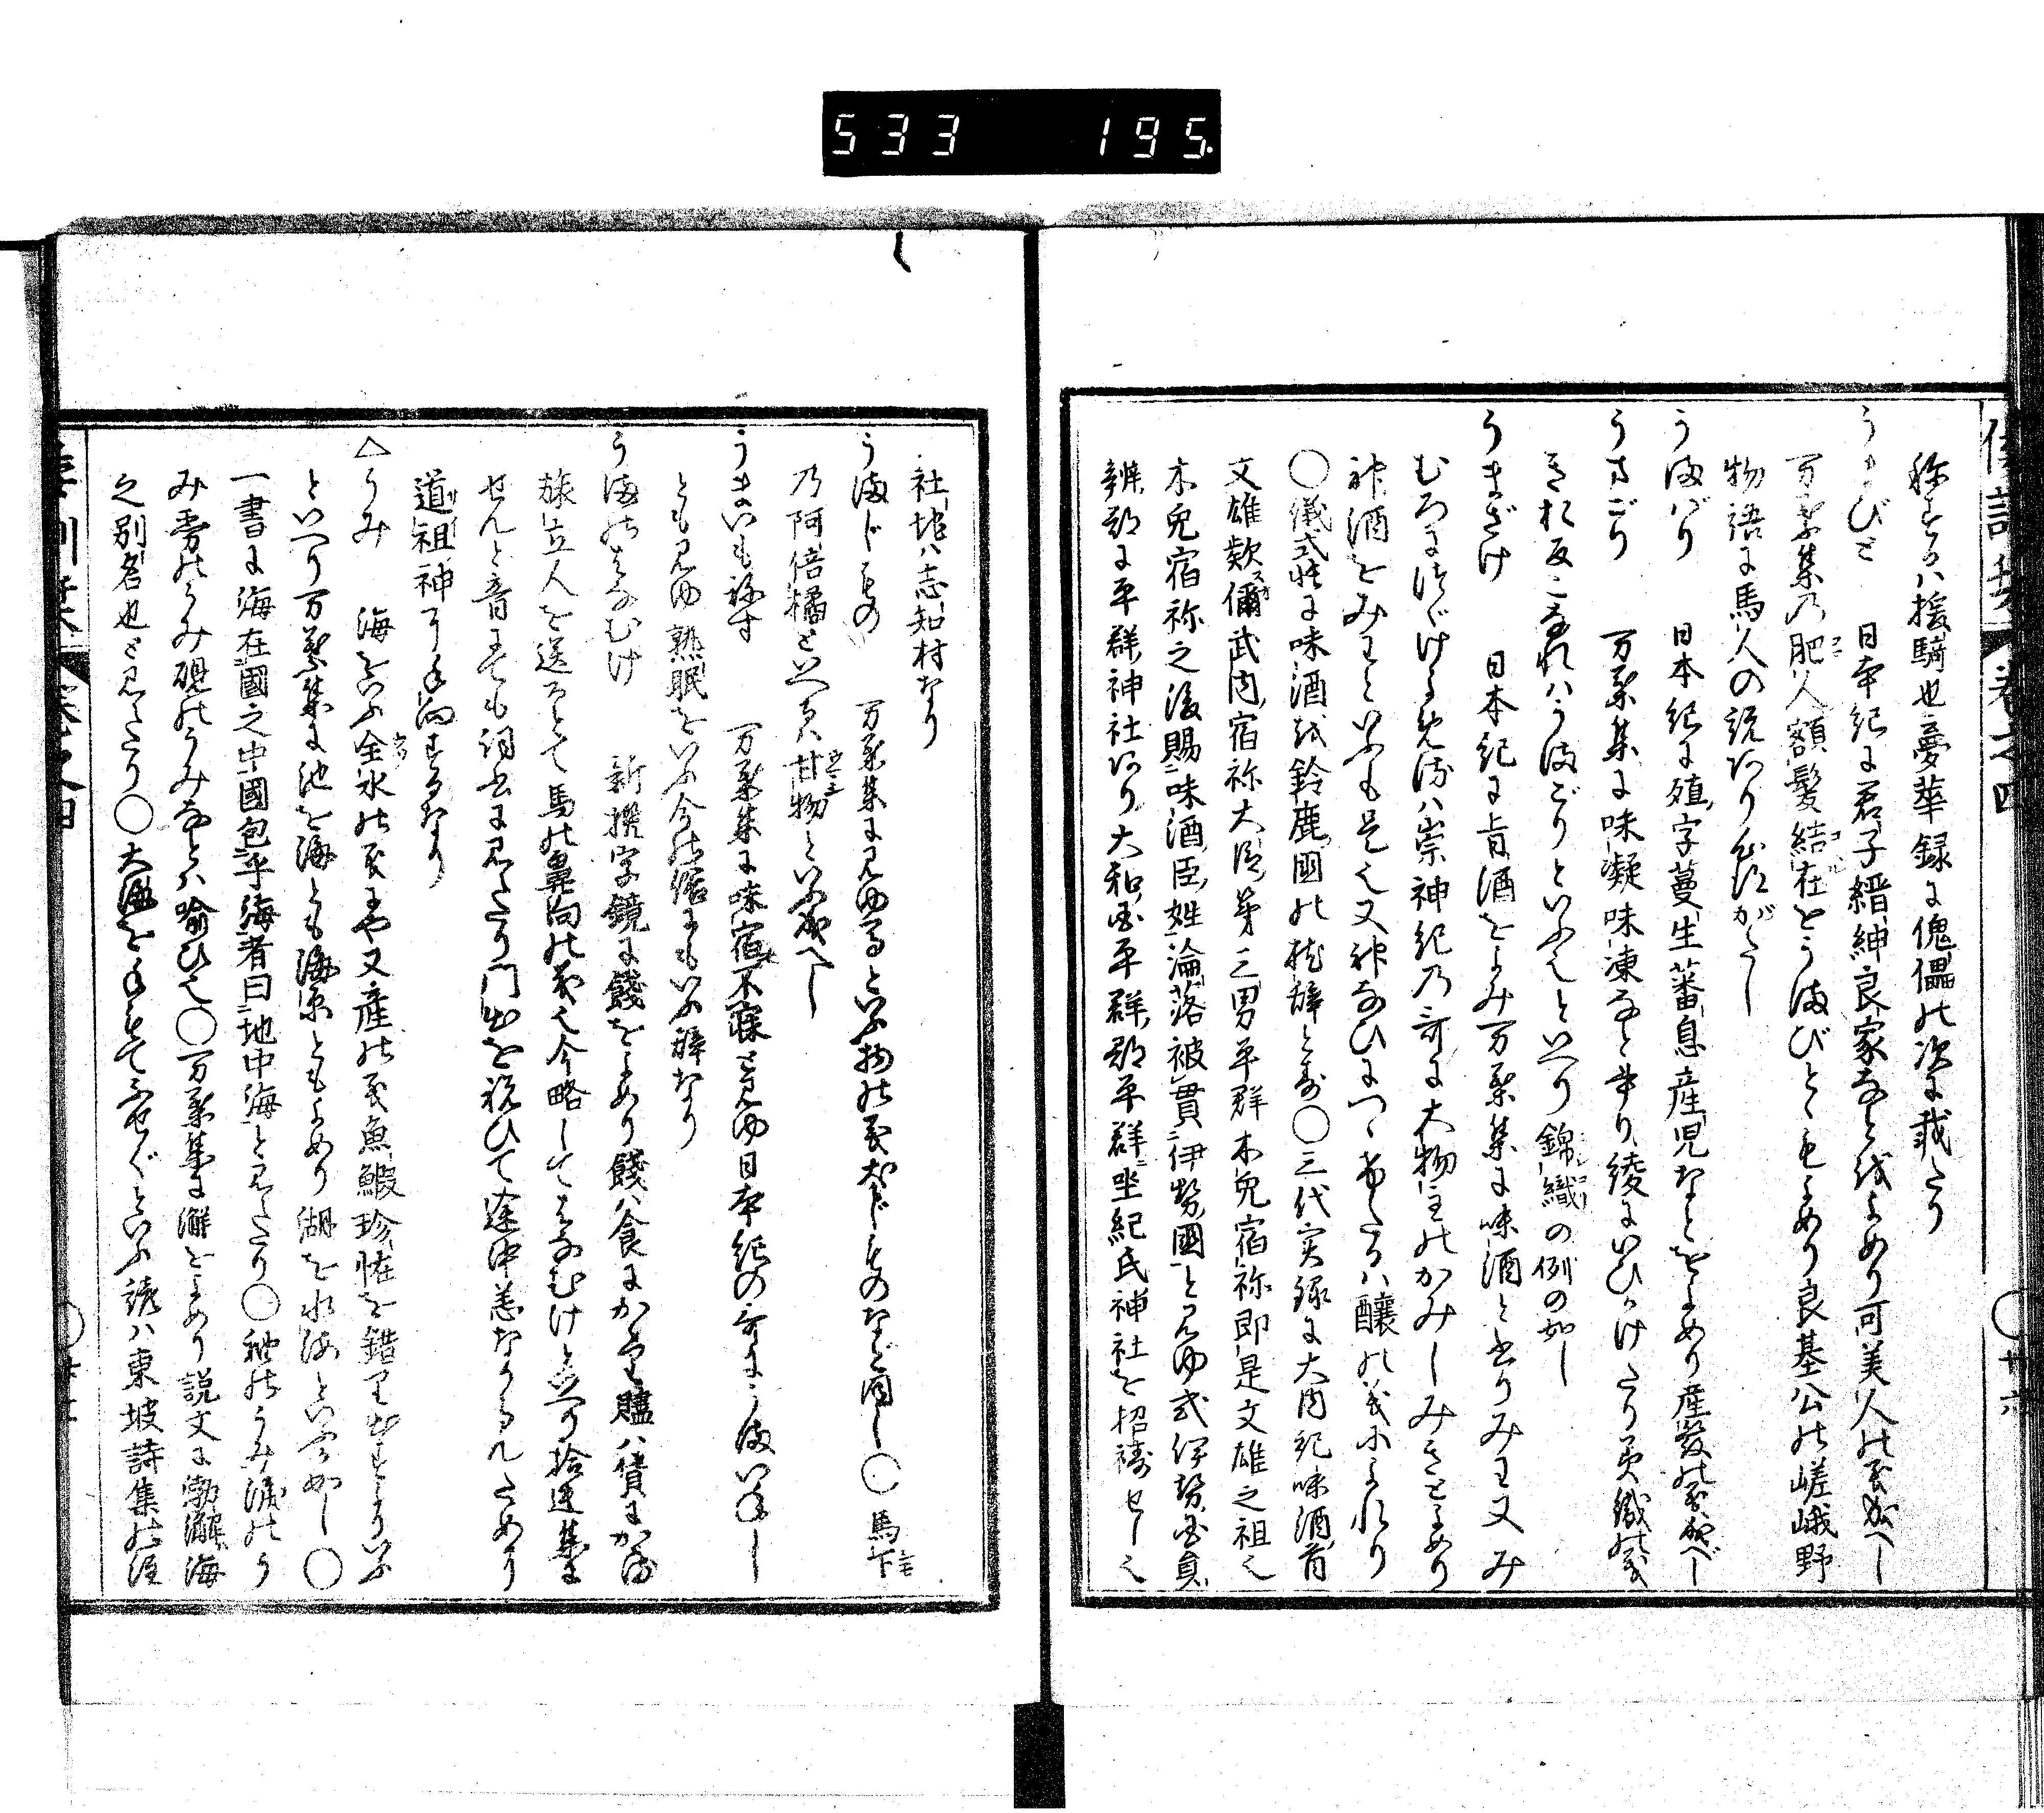 533 195.
倭訓栞 巻之四 ○ 廿六
称するハ援騎也夢華録に傀儡の次に載たり
うまびと 日本紀に君子縉紳良家などをよめり可美人の義成へし
万葉集の肥人額髪結在をうまびとゝもよめり良基公の嵯峨野
物語に馬人の説ありがたし
うまばり 日本紀に殖字蔓生蕃息産児などをよめり産發の義成べし
うまごり 万葉集に味凝味凍など書り綾にいひかけたり美織の義
きれ反こなれハうまごりといふ也といへり錦織の例の如し
うまざけ 日本紀に旨酒をよみ万葉集に味酒と書りみわ又み
むろにつゞけよめるハ崇神紀の哥に大物主のかみしみきとよめり
神酒をみわといふも是也又神なひにつゝけたるハ釀の義によれり
○儀式帳に味酒鈴鹿國の枕辞とす○三代実録に大内記味酒首
文雄欵儞武内宿祢大臣第三男平群木兔宿祢即是文雄之祖也
木兔宿祢之後賜味酒臣姓淪落被貫伊勢國と見ゆ式伊勢国員
辨郡に平群神社あり大和国平群郡平群坐紀氏神社を招祷せし也
社地ハ志知村なり
うまじもの 万葉集に見ゆるといふ物の義犬じものなど同し○馬下
乃阿倍橘といへハ甘物といふ成へし
うまいもねす 万葉集に味宿不寐と見ゆ日本紀の哥にうまいねし
とも見ゆ熟眠をいふ今の俗にもいふ辞なり
うまのはなむけ 新撰字鏡に餞をよめり餞ハ食にかゝり贐ハ貨にかゝる
旅立人を送るとて馬の鼻向の義也今略してはなむけといへり拾遺集に
せんと音にても詞書に見えたり門出を祝ひて途中恙なからんためり
道祖神に手向するなり
△うみ 海をいふ全水の義にや又産の義魚鰕珍怪を錯り出すよりいふ
といへり万葉集に池を海とも海原ともよめり湖を水海といふか如し○
一書に海在國之中國包乎海者曰地中海と見えたり○袖のうみ涙のう
み硯のうみなとハ喩ひ也○万葉集に澥をよめり説文に勃澥海
之別名也と見えたり○大海を手もてふせぐといふ諺ハ東坡詩集の注
倭訓栞 巻之四 ○ 廿七